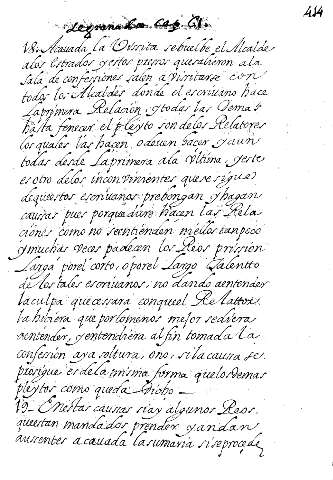 414
18. Acavada la Visita sebuelbe el Alcalde
alos Estrados yestos presos quesalieron ala
sala de confessiones salen a visitarse con
todos los Alcaldes donde el escrivano hace
la primera Relacion, y todas las Demas
hasta fenecer el pleyto son delos Relatores
los quales las hacen, o deven hacer y aun
todas desde la primera ala Ultima, y este
es otro delos inconvinientes que se sigue
de questos escrivanos prebengan y hagan
causas pues porque aduve hacen las Rela-
ciones como no se entienden niellos tanpoco
y muchas veces padecen los Reos prission
Larga porel corto, o porel Largo talentto
delos tales escrivanos, no dando aentender
la culpa que cessara con que el Relattor
la hiciera que porlomenos mejor se diera
aentender, y entendiera al fin tomada la
confesion aya soltura, o no, si la causa se
prosigue es dela misma forma que los demas
pleytos como queda dicho
19. En estas causas si ay algunos Reos
que estan mandados prender y andan
ausentes acavada la sumaria si se procede